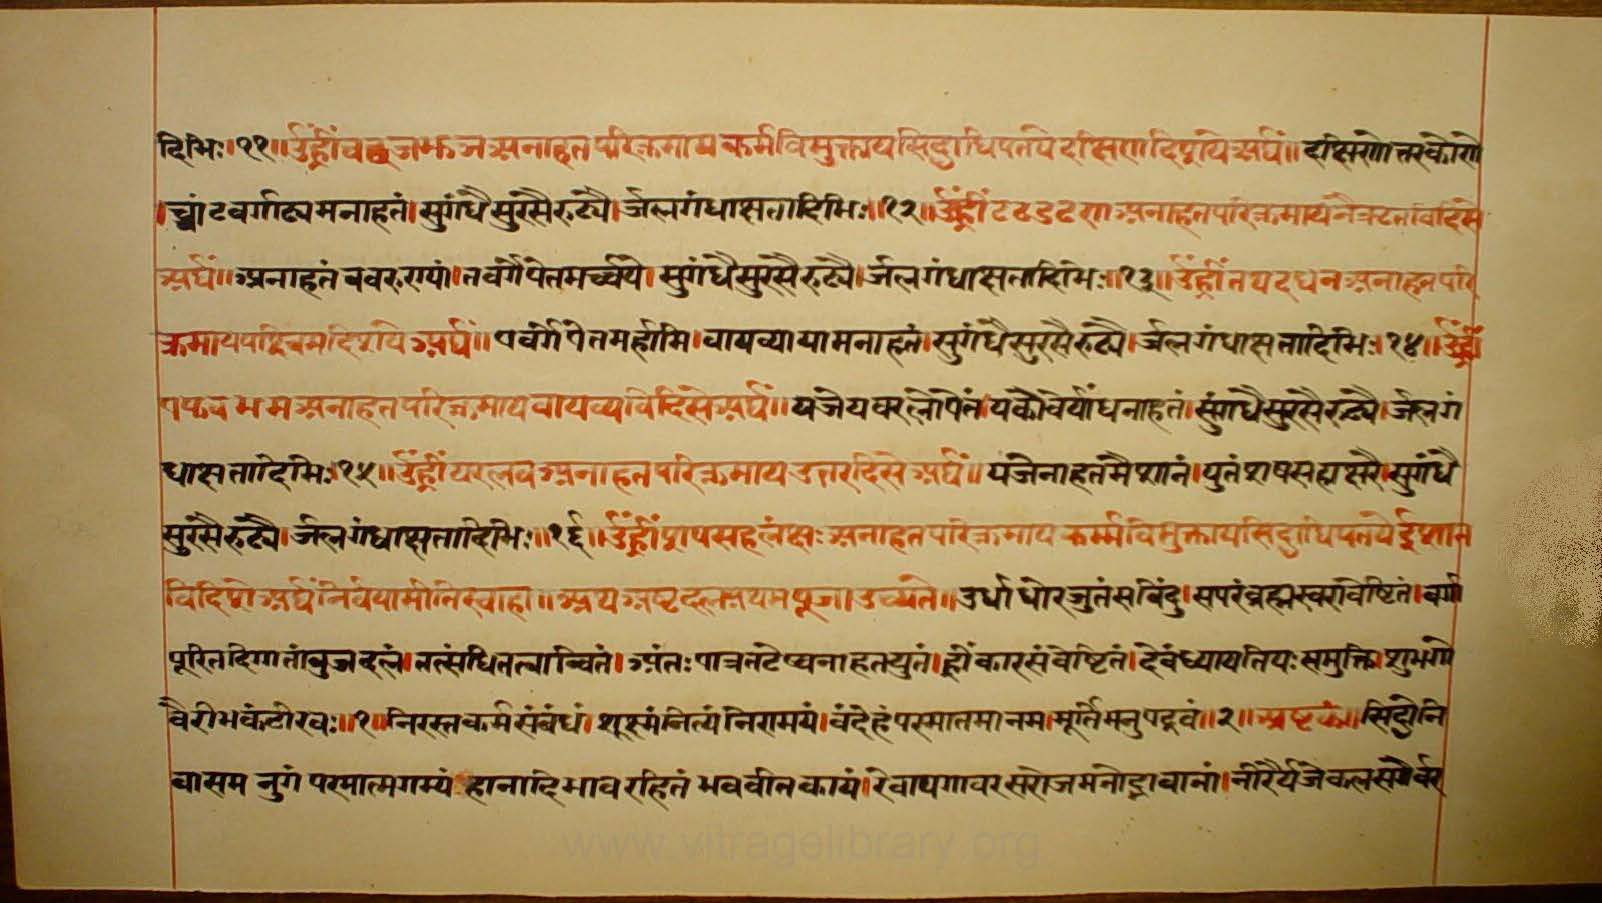 दिभिः।११॥ॐह्रींचछजझञअनाहतपरिक्रमायकर्मविमुक्तायसिद्धाधिपतयेदक्षिणदिशयेअर्घं॥ दक्षिणोत्तरकोणे
।च्चां टवर्गाढ्यमनाहतं।सुगंधैसुरसैरुढ्यै।र्जलगंधाक्षतादिभिः॥१२॥ॐह्रींटठडढणअनाहतपरिक्रमाय
अर्घं॥अनाहतं तवर्गोपेतमर्च्चये। सुगंधैसुरसैरुढ्यै।र्जलगंधाक्षतादिभिः॥१३॥ॐह्रींतथदधनअनाहतपरि
क्रमायपश्चिमदिशये अर्घं॥ पवर्गोपेतमर्हामि।वायव्यायामनाहतं।सुगंधैसुरसैरुढ्यै।र्जलगंधाक्षतादिभिः॥१४॥ॐह्रीं
पफबभमअनाहतपरिक्रमायवायव्यविदिसेअर्घं॥यजेयवरलोपेतं। सुगंधैसुरसैरुढ्यै।र्जलगं
धाक्षतादिभिः॥१५॥ॐह्रींयरलवअनाहतपरिक्रमायउत्तरदिसेअर्घं॥ यजेनाहतमैशानं।युतंशषसहाक्षरै।सुगंधै
सुरसैरुढ्यै।र्जलगंधाक्षतादिभिः॥१६॥ॐह्रींशषसहलंक्षः अनाहतपरिक्रमायकर्म्मविमुक्तायसिद्धाधिपतयेईशान
विदिशेअर्घंनिर्वपामीतिस्वाहा॥अथअष्टदल पूजाउच्यते॥उर्धाधोरजुतंसबिंदु।सपरंब्रह्मस्वरावेष्टितं।वर्गा
पूरितदिग्गतांबुजदलं।तत्संधितत्वान्वितं।अंतःपत्रतटेष्वनाहतयुतं।ह्रींकारसंवेष्टितं।देवंध्यायतियःसमुक्तिशुभगो
वैरीभकंठीरवः॥१॥निरस्तकर्मसंबंधं।शूक्ष्मंनित्यंनिरामयं।वंदेहंपरमातमानम।मूर्तिमनुपद्रवं॥२॥अष्टकं॥सिद्धौनि
वासमनुगं परमात्मगम्यं हानादिभावरहितं भववीतकायं।रेवापगावरसरोजमनोद्भवानां।नीरैर्यजेकलसगैर्वर
www.vitragelibrary.org